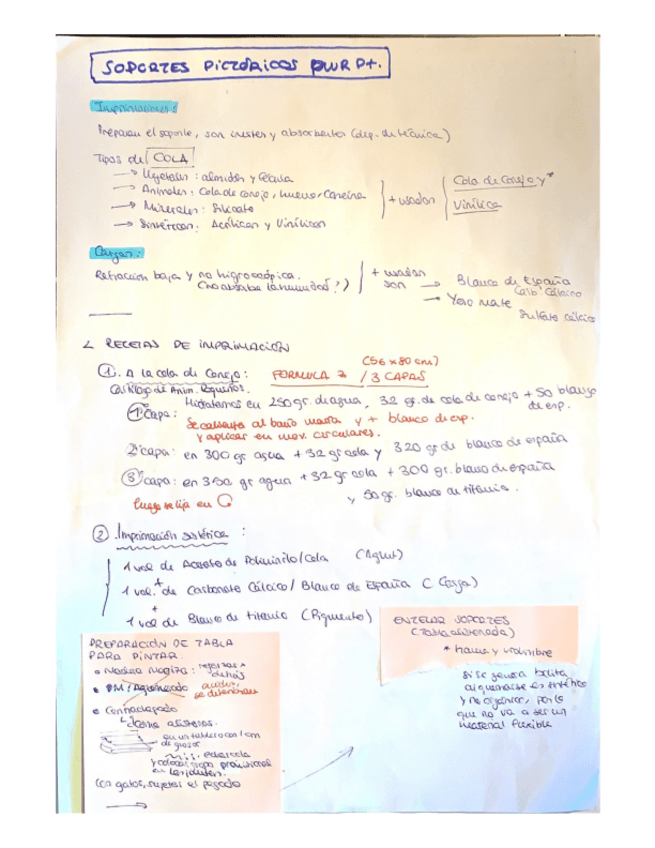 SOPORTES PICTÓRICOS
Imprimaciones:
Preparan el soporte, son inertes y absorbentes (dep. de técnica)
Tipos de COLA
→ Vegetales: almidón y
→ Animales: Cola de conejo, huevo, Caseína
→ Minerales: Silicato
→ Sintéticas: Acrílicas y Vinílicas
+ usadas
Cola de Conejo y *
Vinílica
Cargas:
Refracción baja y no higroscópica.
(no absorbe la humedad?)
+ usadas
son → Blanco de España
Carb. Cálcico
→ Yeso Mate
Sulfato cálcico
2 RECETAS DE IMPRIMACIÓN
① A la cola de Conejo: FORMULA / 3 CAPAS (56 x 80 cm)
Cartílago de Anim. Pequeños.
Hidratamos en 250 gr. de agua, 32 gr. de cola de conejo + 50 blanco
de esp.
1ª Capa: Se calienta al baño maría y + blanco de esp.
y aplicar en mov. circulares.
2ª capa: en 300 gr agua + 32 gr cola y 320 gr de blanco de españa
③ capa: en 350 gr agua + 32 gr cola + 300 gr. blanco de españa
y 50 gr. blanco de titanio.
luego se lija en
② Imprimación sintética:
1 vol de Acetato de Polivinilo/Cola (Aglut)
+
1 vol. de Carbonato Cálcico / Blanco de España (Carga)
+
1 vol de Blanco de titanio (Pigmento)
PREPARACIÓN DE TABLA
PARA PINTAR
• Madera Maciza: refuerzos x
detrás
• DM/Aglomerado
se
• Contrachapado
↳ Como
en un tablero con 1 cm
de grosor
y colocas grapa provisional
en
Con gatos, sujetas el pegado
ENTELAR SOPORTES
(Tabla alistonada)
*
Si se
aglutinante es sintético
y no orgánico, por lo
que no va a ser un
material flexible